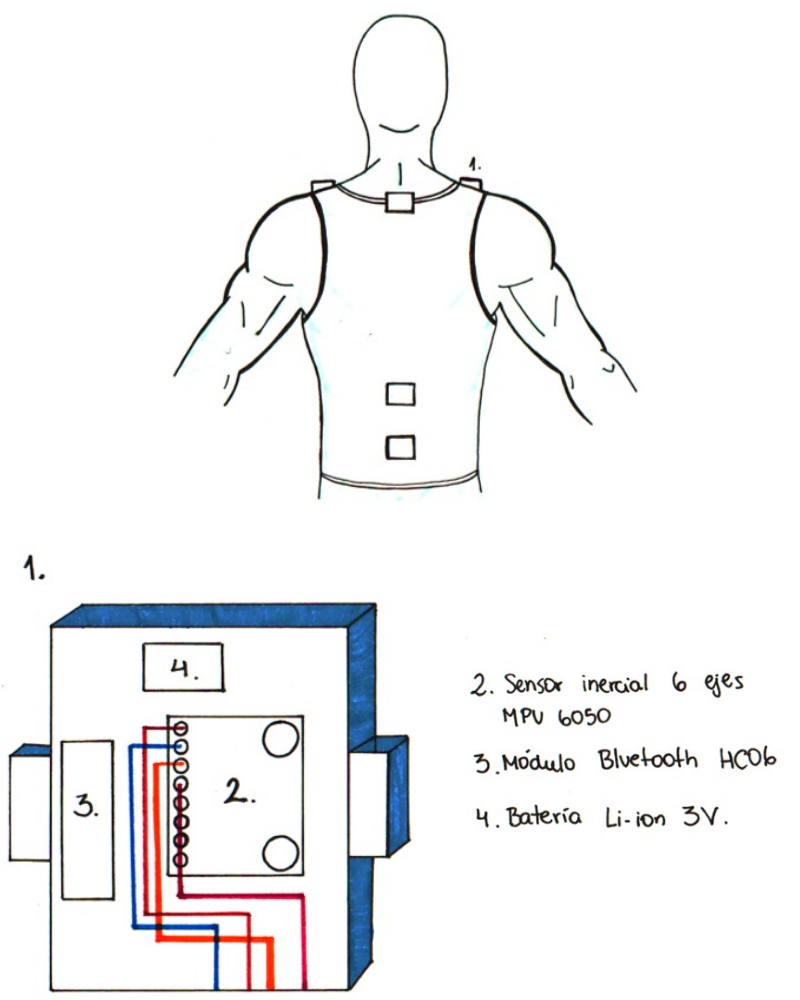 1.
1.
4.
3.
2.
2. Sensor inercial 6 ejes
MPU 6050
3. Módulo Bluetooth HC06
4. Batería Li-ion 3V.